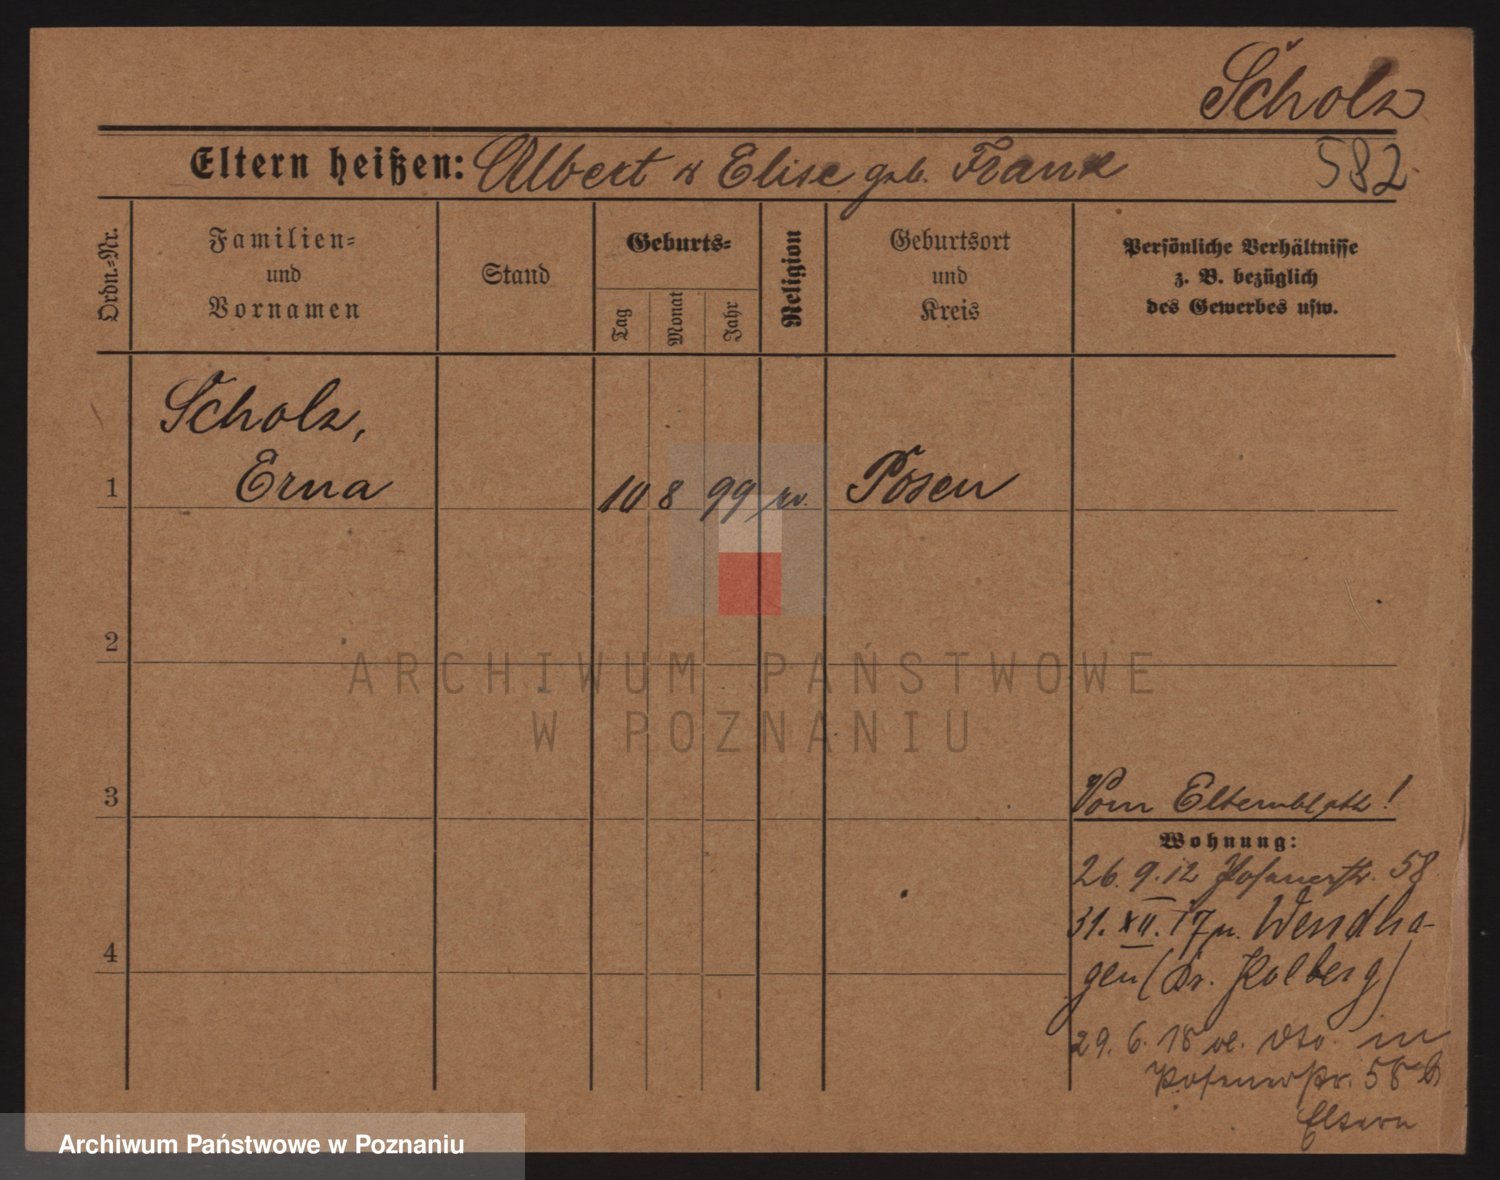 Scholz
Eltern heißen: Albert u Elise geb. Frank
582
Ordn.=Nr.
Familien=
und
Vornamen
Stand
Geburts=
Tag
Monat
Jahr
Religion
Geburtsort
und
Kreis
Persönliche Verhältnisse
z. B. bezüglich
des Gewerbes usw.
Scholz,
1 Erna 10 8 99 Posen
2
3
4
ARCHIWUM PAŃSTWOWE
W POZNANIU
Vom Elternblatt!
Wohnung:
26. 9. 12 Posenerstr. 58
31. XII. 17 n. Wendha-
gen (Kr. Kolberg)
29. 6. 18 in
Posenerstr. 58 b
Eltern
Archiwum Państwowe w Poznaniu